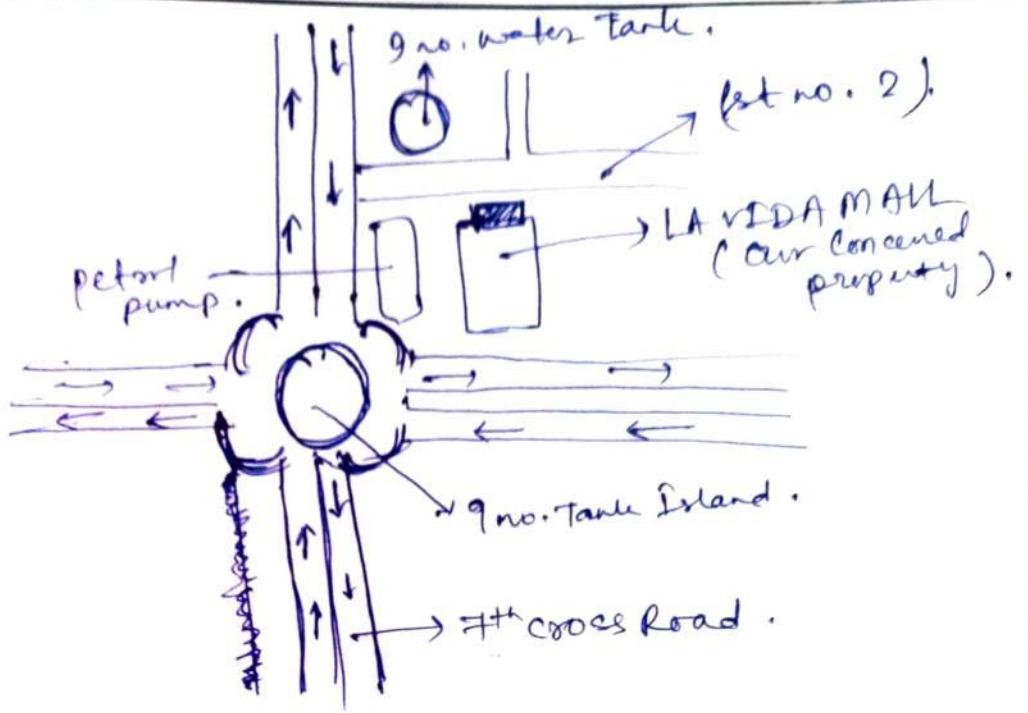 9 no. water Tank.
(st no. 2).
LA VIDA MALL
( our Concerned
property ).
petorl
pump.
9 no. Tank Island.
7th cross Road.